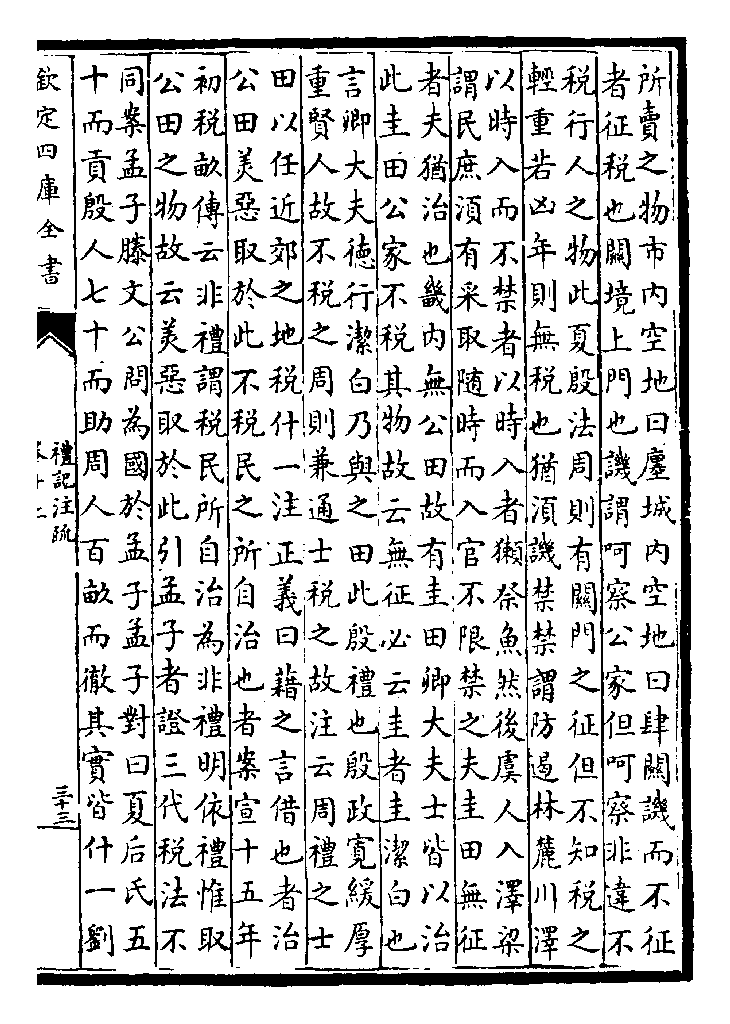 所賣之物市内空地曰廛城内空地曰肆闗譏而不征
者征税也闗境上門也譏謂呵察公家但呵察非違不
税行人之物此夏殷法周則有闗門之征但不知税之
輕重若凶年則無税也猶湏譏禁禁謂防遏林麓川澤
以時入而不禁者以時入者獺祭魚然後虞人入澤梁
謂民庶湏有采取隨時而入官不限禁之夫圭田無征
者夫猶治也畿内無公田故有圭田卿大夫士皆以治
此圭田公家不税其物故云無征必云圭者圭潔白也
言卿大夫徳行潔白乃與之田此殷禮也殷政寛緩厚
重賢人故不税之周則兼通士税之故注云周禮之士
田以任近郊之地税什一注正義曰藉之言借也者治
公田美惡取於此不税民之所自治也者案宣十五年
初税畝傳云非禮謂税民所自治為非禮明依禮惟取
公田之物故云美惡取於此引孟子者證三代税法不
同案孟子滕文公問為國於孟子孟子對曰夏后氏五
十而貢殷人七十而助周人百畝而徹其實皆什一劉
欽定四庫全書
禮記注疏
三十三